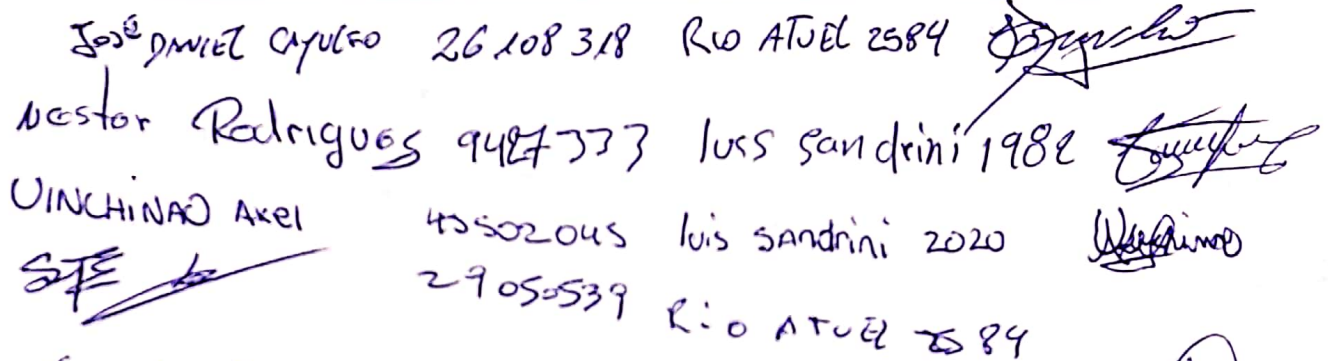 José DANIEL CAYULEO 26108318 RIO ATUEL 2584
Nestor Rodrigues 9427333 luis sandrini 1982
VINCHINAO Axel 45502045 luis sandrini 2020
29050539 Rio ATUEL 2584